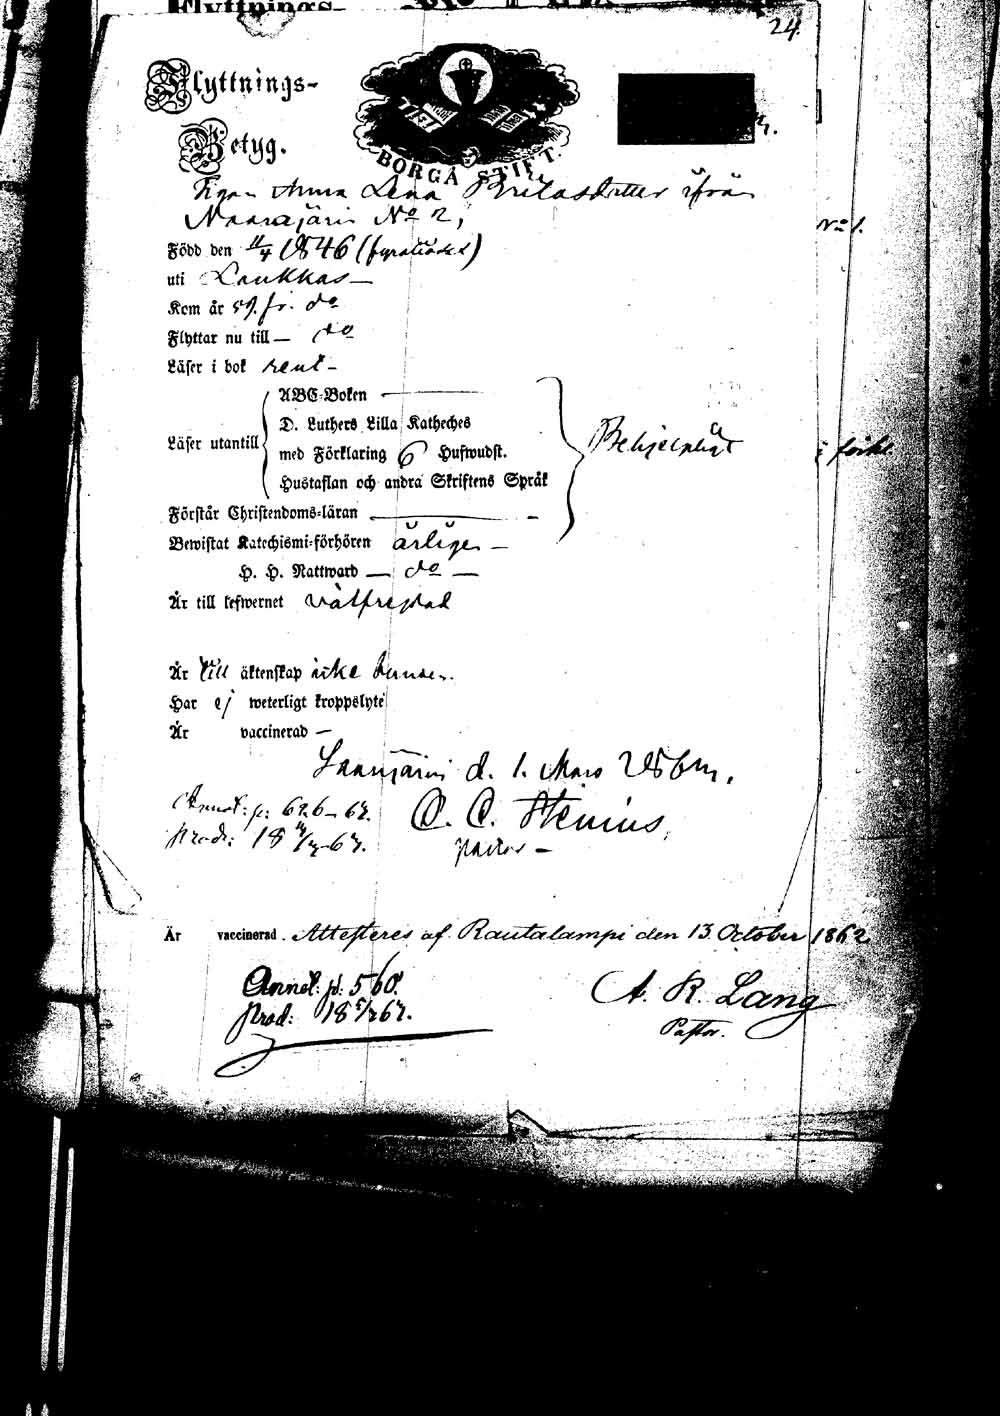 24.
Flyttnings-
Betyg.
BORGÅ STIFT.
Pigan Anna Lena Britasdotter ifrån
Naarajärvi No 2,
No 1.
Född den 11/4 1846 (fyratiosex)
uti Laukkas
Kom år 59. fr. do
Flyttar nu till — do
Läser i bok rent -
Läser utantill
ABC-Boken
D. Luthers Lilla Katheches
med Förklaring 6 Hufwudst.
Hustaflan och andra Skriftens Språk
Behjelpligt
Förstår Christendoms-läran
Bewistat Katechismi-förhören årligen —
H. H. Nattward — do —
Är till lefwernet välfrejdad
Är till äktenskap icke bunden.
Har ej weterligt kroppslyte
Är vaccinerad —
d. 1. Mars
Annot: p: 626-62.
Prod:
C. C. Stenius,
pastor —
Är vaccinerad. Attesteres af Rautalampi den 13. October 1862
Annot: p: 560.
Prod: 18 5/12 62.
A. R. Lang
Pastor.